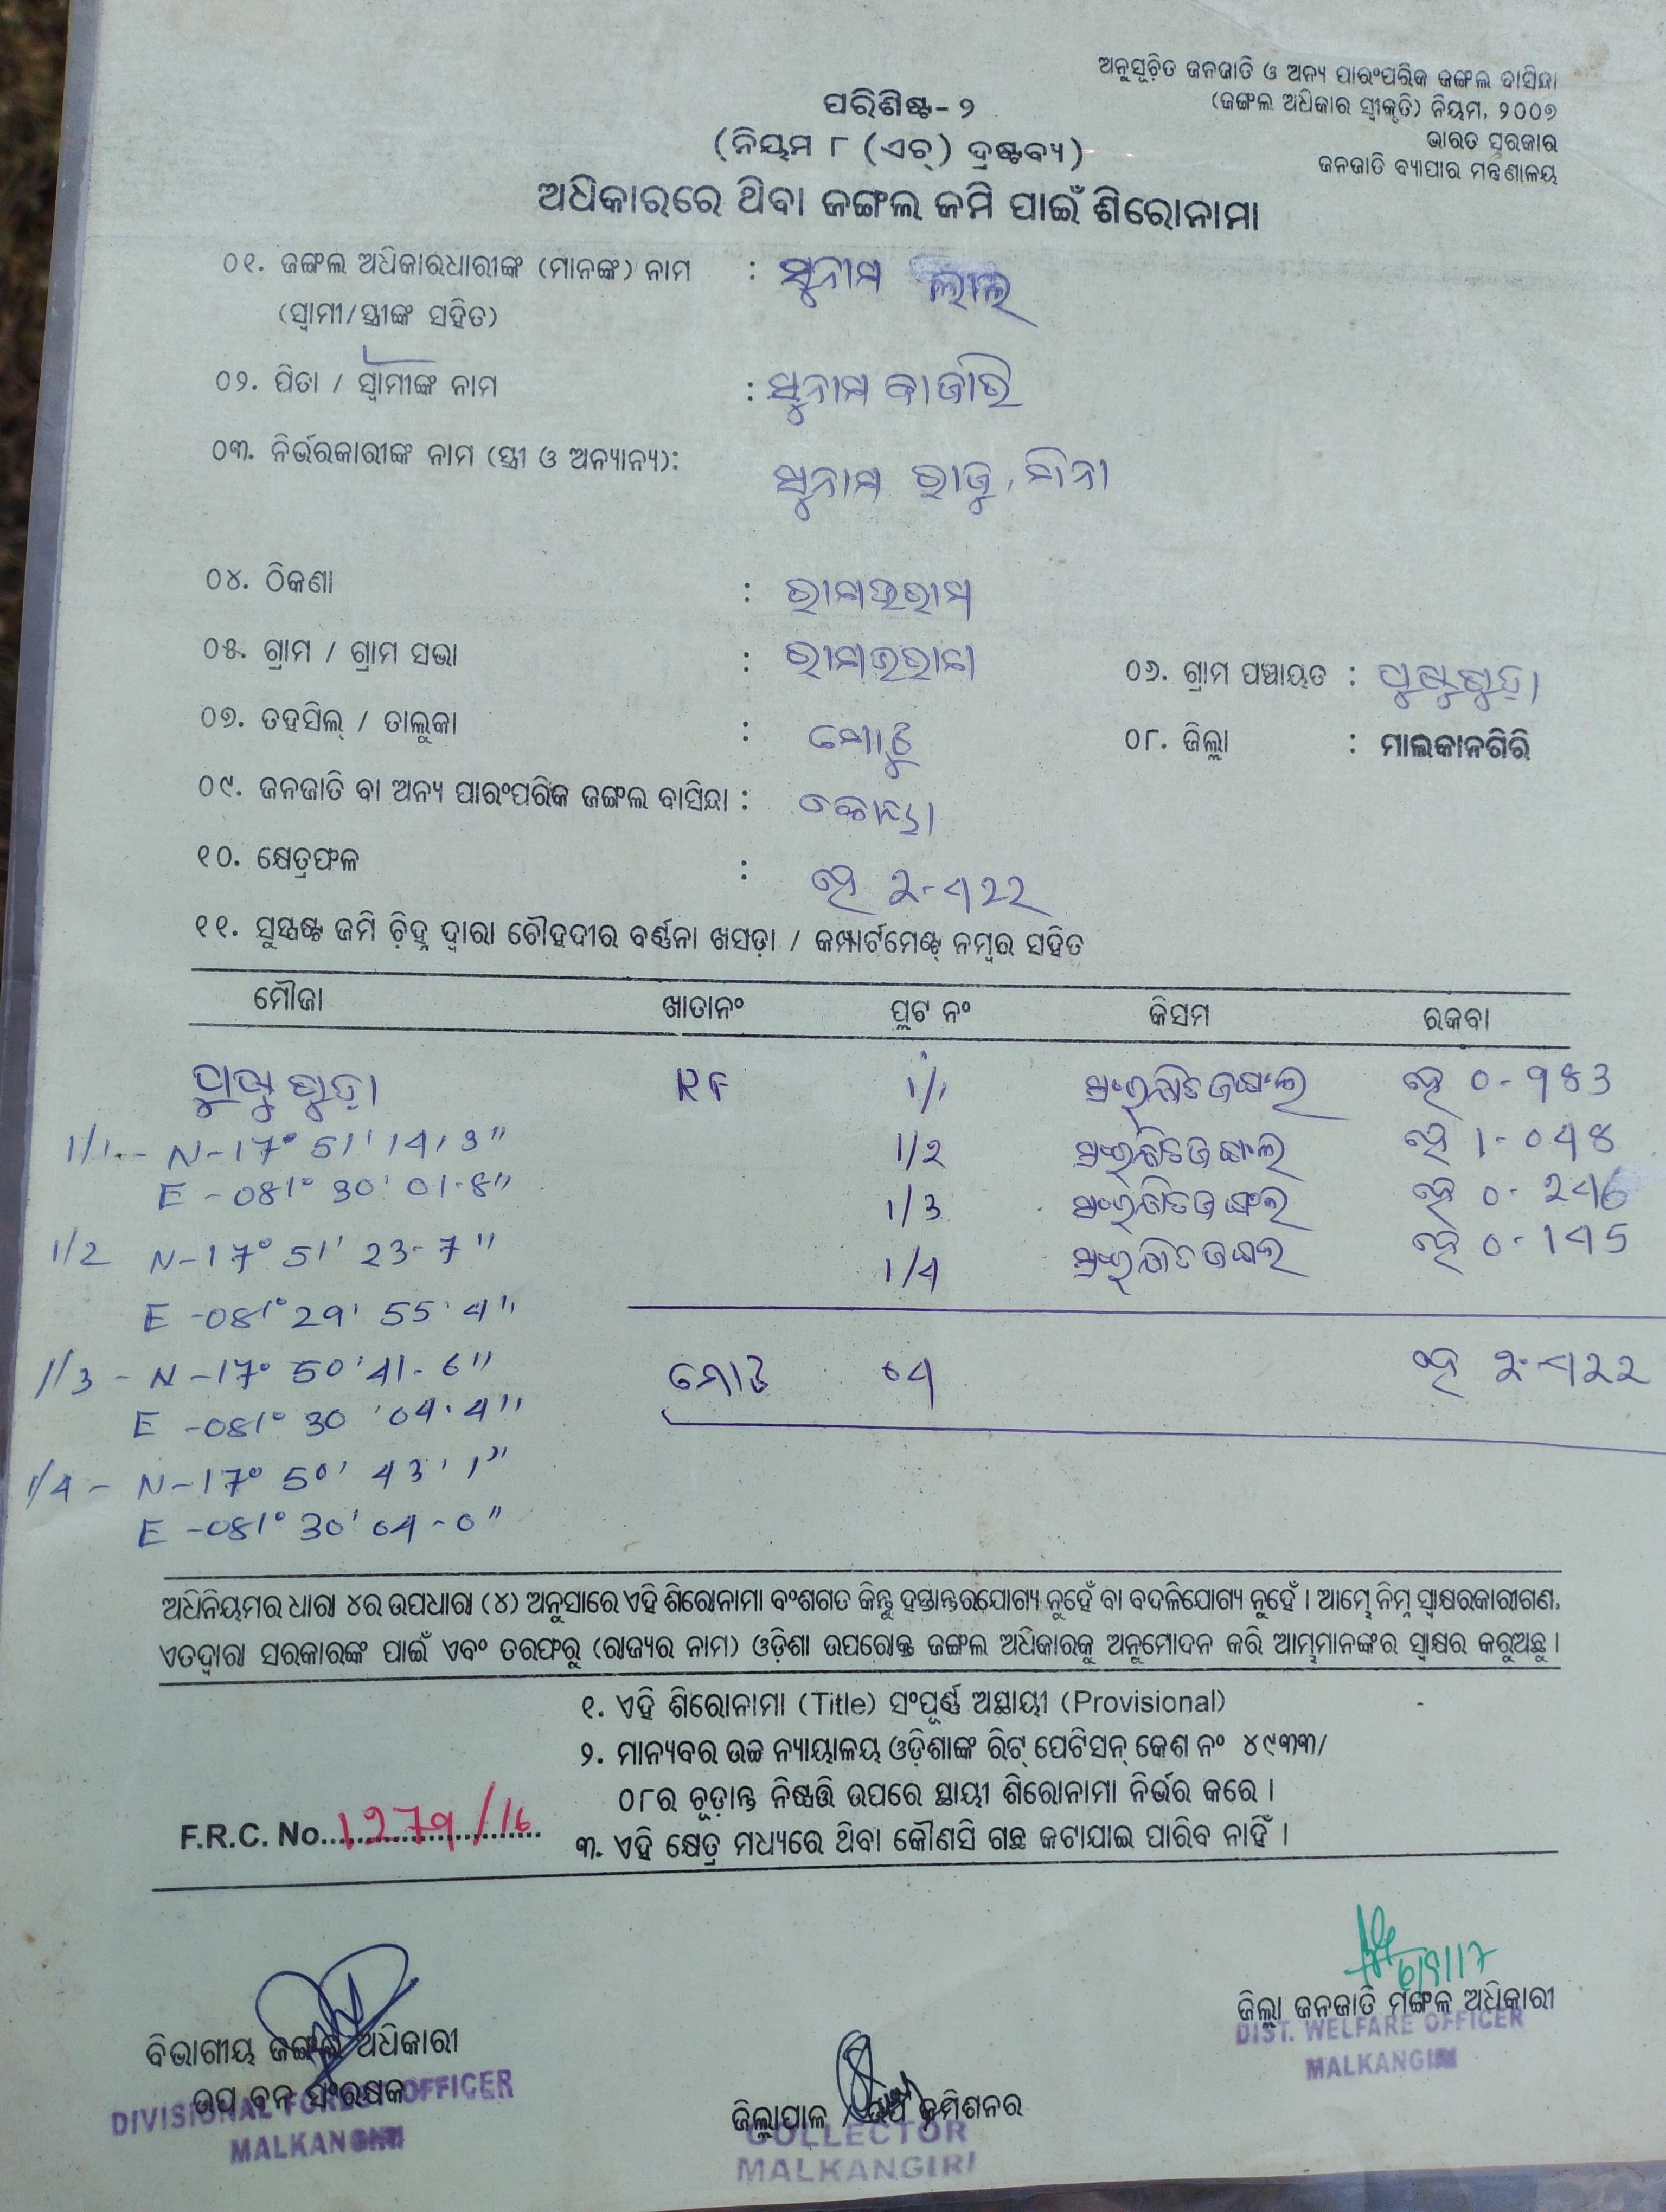 ଅନୁସୂଚିତ ଜନଜାତି ଓ ଅନ୍ୟ ପାରଂପରିକ ଜଙ୍ଗଲ ବାସିନ୍ଦା
(ଜଙ୍ଗଲ ଅଧିକାର ସ୍ୱୀକୃତି) ନିୟମ, ୨୦୦୭
ଭାରତ ସରକାର
ଜନଜାତି ବ୍ୟାପାର ମନ୍ତ୍ରଣାଳୟ
ପରିଶିଷ୍ଟ-୨
(ନିୟମ ୮ (ଏଚ୍) ଦ୍ରଷ୍ଟବ୍ୟ)
ଅଧିକାରରେ ଥିବା ଜଙ୍ଗଲ ଜମି ପାଇଁ ଶିରୋନାମା
୦୧. ଜଙ୍ଗଲ ଅଧିକାରଧାରୀଙ୍କ (ମାନଙ୍କ) ନାମ :
(ସ୍ୱାମୀ/ସ୍ତ୍ରୀଙ୍କ ସହିତ)
୦୨. ପିତା / ସ୍ୱାମୀଙ୍କ ନାମ :
୦୩. ନିର୍ଭରକାରୀଙ୍କ ନାମ (ସ୍ତ୍ରୀ ଓ ଅନ୍ୟାନ୍ୟ):
୦୪. ଠିକଣା :
୦୫. ଗ୍ରାମ / ଗ୍ରାମ ସଭା : ୦୬. ଗ୍ରାମ ପଞ୍ଚାୟତ :
୦୭. ତହସିଲ୍ / ତାଲୁକା : ମୋଟୁ ୦୮. ଜିଲ୍ଲା : ମାଲକାନଗିରି
୦୯. ଜନଜାତି ବା ଅନ୍ୟ ପାରଂପରିକ ଜଙ୍ଗଲ ବାସିନ୍ଦା : କୋୟା
୧୦. କ୍ଷେତ୍ରଫଳ : ହେ 2-422
୧୧. ସୁସ୍ପଷ୍ଟ ଜମି ଚିହ୍ନ ଦ୍ୱାରା ଚୌହଦୀର ବର୍ଣ୍ଣନା ଖସଡ଼ା / କମ୍ପାର୍ଟମେଣ୍ଟ୍ ନମ୍ବର ସହିତ
ମୌଜା ଖାତାନଂ ପ୍ଲଟ ନଂ କିସମ ରକବା
RF 1/1 ସଂରକ୍ଷିତ ଜଙ୍ଗଲ ହେ 0-983
1/1 - N-17° 51' 14.3"
1/2 ସଂରକ୍ଷିତ ଜଙ୍ଗଲ ହେ 1-048
E -081° 30' 01.8"
1/3 ସଂରକ୍ଷିତ ଜଙ୍ଗଲ ହେ 0-246
1/2 N-17° 51' 23-7"
1/4 ସଂରକ୍ଷିତ ଜଙ୍ଗଲ ହେ 0-145
E -081° 29' 55.4"
1/3 - N-17° 50' 41-6" ମୋଟ 04 ହେ 2-422
E -081° 30' 04.4"
1/4 - N-17° 50' 43.1"
E -081° 30' 04-0"
ଅଧିନିୟମର ଧାରା ୪ର ଉପଧାରା (୪) ଅନୁସାରେ ଏହି ଶିରୋନାମା ବଂଶଗତ କିନ୍ତୁ ହସ୍ତାନ୍ତରଯୋଗ୍ୟ ନୁହେଁ ବା ବଦଳିଯୋଗ୍ୟ ନୁହେଁ । ଆମ୍ଭେ ନିମ୍ନ ସ୍ୱାକ୍ଷରକାରୀଗଣ,
ଏତଦ୍ୱାରା ସରକାରଙ୍କ ପାଇଁ ଏବଂ ତରଫରୁ (ରାଜ୍ୟର ନାମ) ଓଡ଼ିଶା ଉପରୋକ୍ତ ଜଙ୍ଗଲ ଅଧିକାରକୁ ଅନୁମୋଦନ କରି ଆମ୍ଭମାନଙ୍କର ସ୍ୱାକ୍ଷର କରୁଅଛୁ ।
୧. ଏହି ଶିରୋନାମା (Title) ସଂପୂର୍ଣ୍ଣ ଅସ୍ଥାୟୀ (Provisional)
୨. ମାନ୍ୟବର ଉଚ୍ଚ ନ୍ୟାୟାଳୟ ଓଡ଼ିଶାଙ୍କ ରିଟ୍ ପେଟିସନ୍ କେଶ ନଂ ୪୯୩୩/
୦୮ର ଚୂଡ଼ାନ୍ତ ନିଷ୍ପତ୍ତି ଉପରେ ସ୍ଥାୟୀ ଶିରୋନାମା ନିର୍ଭର କରେ ।
F.R.C. No.
୩. ଏହି କ୍ଷେତ୍ର ମଧ୍ୟରେ ଥିବା କୌଣସି ଗଛ କଟାଯାଇ ପାରିବ ନାହିଁ ।
ଜିଲ୍ଲା ଜନଜାତି ମଙ୍ଗଳ ଅଧିକାରୀ
DIST. WELFARE OFFICER
MALKANGIRI
ବିଭାଗୀୟ ଜଙ୍ଗଲ ଅଧିକାରୀ
ଉପ ବନ ସଂରକ୍ଷକ
DIVISIONAL FOREST OFFICER
MALKANGIRI
ଜିଲ୍ଲାପାଳ / ଉପ କମିଶନର
COLLECTOR
MALKANGIRI